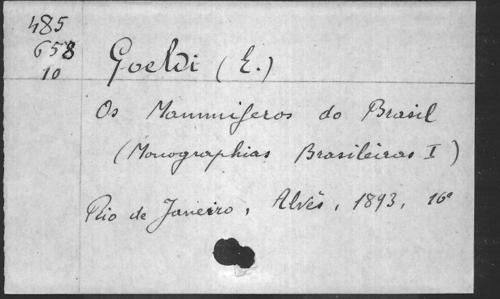 485
658
10
Goeldi (E.)
Os Mammiferos do Brasil
(Monographias Brasileiras I)
Rio de Janeiro, Alvès, 1893, 16º